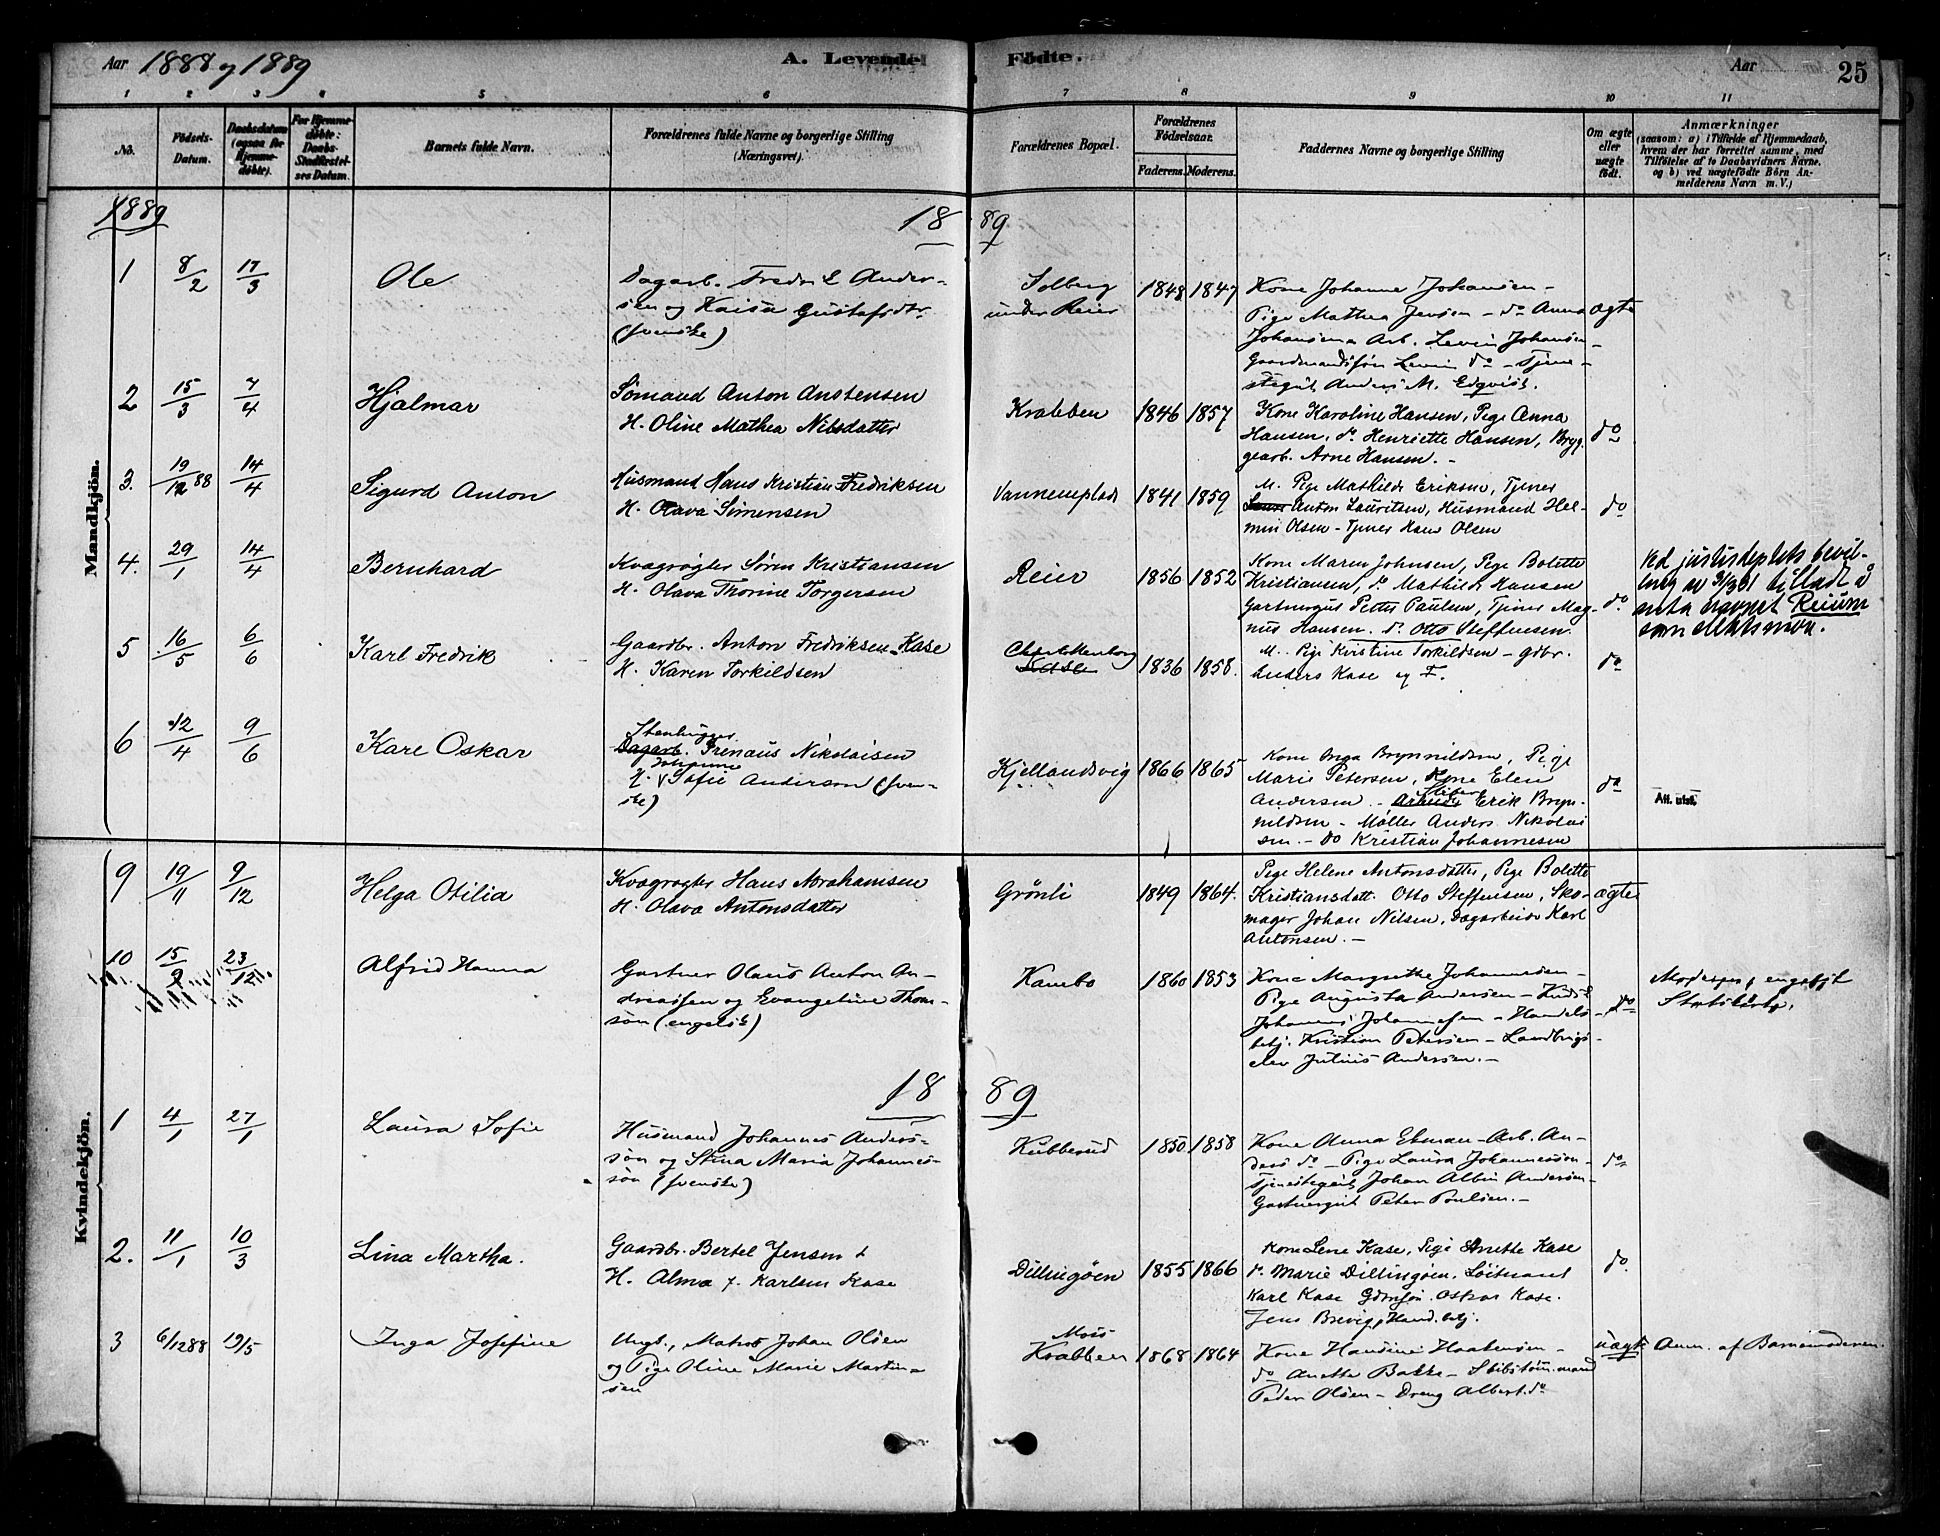 Aar 1888 og 1889 A. Levende Födte. Aar 25
1 2 3 4 5 6 7 8 9 10 11
No. Födsels-Datum. Daabsdatum (ogsaa for Hjemmedöbte). For Hjemmedöbte: Daabs-Stadfæstelses Datum. Barnets fulde Navn. Forældrenes fulde Navne og borgerlige Stilling (Næringsvei). Forældrenes Bopæl. Forældrenes Födselsaar. Faderens. Moderens. Faddernes Navne og borgerlige Stilling Om ægte eller uægte födt. Anmærkninger (saasom: a) i Tilfælde af Hjemmedaab, hvem der har forrettet samme, med Tilföielse af to Daabsvidners Navne. og b) ved uægtefödte Börn Anmelderens Navn m. V.)
Mandkjön.
1889 18 89
1 8/2 17/3 Ole
Dagarb. Fredrik Ander-
sen og Kaisa Gustafsdtr.
(svenske)
Solberg
under Reier
1848 1847
Kone Johanne Johansen -
Pige Mathea Jensen - do Anna
Johansen Arb. Levin Johansen -
Gaardmandssøn Levin do - Tjene-
stegut Anders M. Edqvist.
ægte
2 15/3 7/4 Hjalmar
Sömand Anton Anstensen
H. Oline Mathea Nilsdatter
Krabben 1846 1857
Kone Karoline Hansen, Pige Anna
Hansen, do Henriette Hansen, Bryg-
gearb. Arne Hansen. -
do
3. 19/12 88 14/4 Sigurd Anton
Husmand Hans Kristian Fredriksen
H. Olava Simensen
Vannemplads 1841 1859
M. Pige Mathilde Eriksen, Tjener
Anton Lauritsen, Husmand Hel-
min Olsen - Tjener Hans Olsen
do
4. 29/1 14/4 Bernhard
Kvægrögter Sören Kristiansen
H. Olava Thorine Torgersen
Reier 1856 1852
Kone Maren Johnsen, Pige Bolette
Kristiansen, do Mathilde Hansen
Gartnergut Petter Paulsen, Tjener Mag-
nus Hansen. do Otto Steffensen.
do
Ved justisdeptets bevil-
ling av tillatt å
anta navnet Reium
som slektsnavn.
5 16/5 6/6 Karl Fredrik
Gaardbr. Anton Fredriksen Kase
H. Karen Torkildsen
Charlottenborg
1836 1858.
M. Pige Kristine Torkildsen - gdbr.
Anders Kase og F.
do
6 12/4 9/6 Kare Oskar
Stenhugger
Dagarb. Irenæus Nikolaisen
Johanne
H. Sofie Anderson (sven-
ske)
Kjellandsvig 1866 1865
Kone Inga Brynnildsen, Pige
Marie Petersen, Kone Elen
Andersen - Erik Bryn-
nildsen - Møller Anders Nikolai
sen. - do Kristian Johannesen
do
Att. utst.
Kvindekjön.
9 19/11 9/12 Helga Otilia
Kvægrögter Hans Abrahamsen
H. Olava Antonsdatter
Grönli 1849 1864.
Pige Helene Antonsdatter, Pige Bolette
Kristiansdatt. Otto Steffensen, Sko-
mager Johan Nilsen, Dagarbeider Karl
Antonsen. -
ægte
10 15/9 23/12 Alfrid Hanna
Gartner Olaus Anton An-
dreassen og Evangeline Thom-
son (engelsk)
Kambo 1860 1853
Kone Margrethe Johannesen -
Pige Augusta Andersen -
Johannes Johannesen - Handels-
betj. Kristian Petersen - Landbrugs-
elev Julius Andersen. -
do
18 89
1 4/1 27/1 Laura Sofie
Husmand Johannes Anders-
son og Stina Maria Johannes-
son (svenske)
Kubberud 1850 1858
Kone Anna Ekman - Arb. An-
ders do - Pige Laura Johannesson -
Tjenestegut Johan Albin Andersen -
Gartnergut Peter Poulsen. -
do
2. 11/1 10/3 Lina Martha.
Gaardbr. Bertel Jensen &
H. Alma f. Karlsen Kase
Dillingöen 1855 1866
Kone Lene Kase, Pige Anette Kase
do Marie Dillingöen, Löitnant
Karl Kase Gdmsön. Oskar Kase.
Jens Brevig, Hand. betj.
do
3 6/12 88 19/5 Inga Josefine
Ungk., Matros Johan Olsen
og Pige Oline Marie Martin-
sen
Moss
Krabben 1868 1864
Kone Handine Haakensen -
do Anette Bakke - Skibstömmermand
Peder Olsen - Dreng Albert do
uægte
Anm. af Barnemoderen.